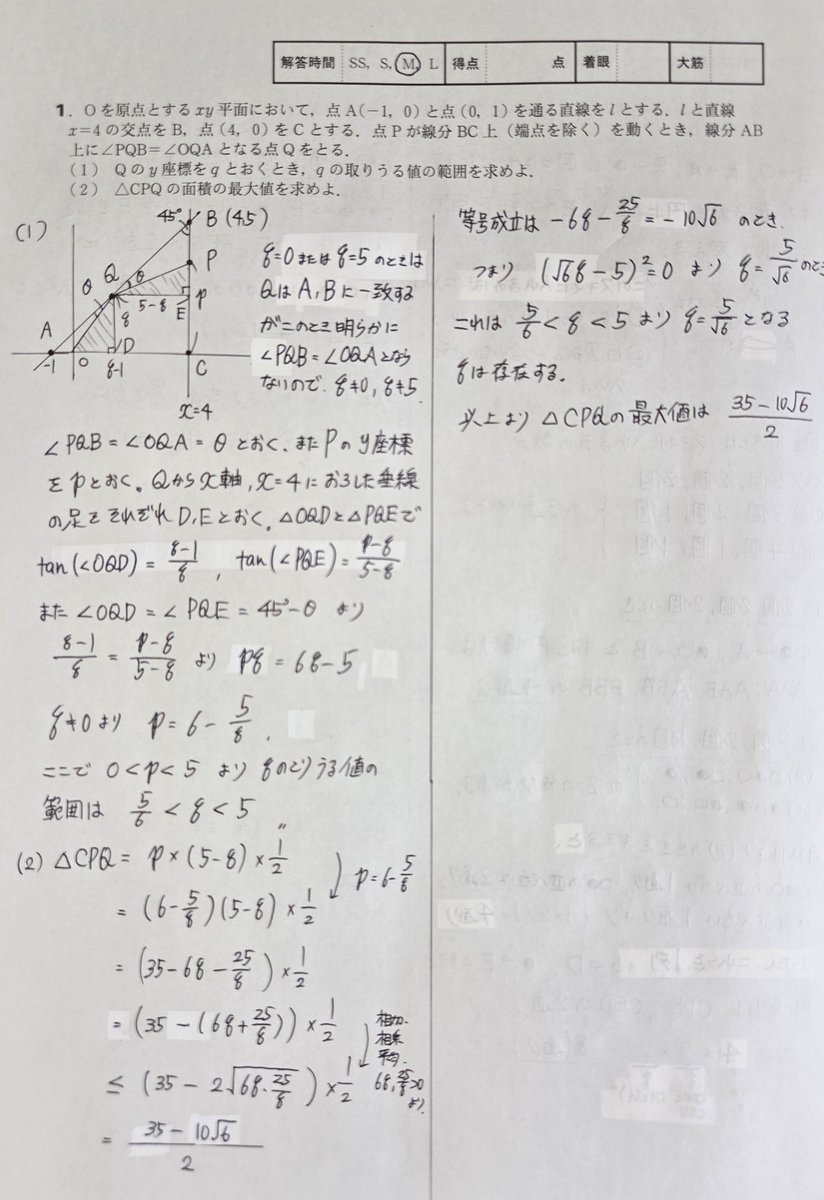 解答時間 SS, S, M, L 得点 点 着眼 大筋
1. Oを原点とするxy平面において，点A(−1, 0)と点(0, 1)を通る直線をlとする．lと直線
x=4の交点をB，点(4, 0)をCとする．点Pが線分BC上（端点を除く）を動くとき，線分AB
上に∠PQB=∠OQAとなる点Qをとる．
(1) Qのy座標をqとおくとき，qの取りうる値の範囲を求めよ．
(2) △CPQの面積の最大値を求めよ．
(1)
45°
B (4,5)
P
θ Q θ
5-q
P
E
q
A
-1
O
D
q-1
C
x=4
q=0 または q=5 のときは
Qは A, B に一致する
がこのとき明らかに
∠PQB=∠OQA となら
ないので、q≠0, q≠5.
∠PQB = ∠OQA = θ とおく、また Pの y座標
を p とおく。Qから x軸, x=4 におろした垂線
の足を それぞれ D, E とおく。△OQD と △PQE で
tan(∠OQD) = (q-1)/q , tan(∠PQE) = (p-q)/(5-q)
また ∠OQD = ∠PQE = 45°-θ より
(q-1)/q = (p-q)/(5-q) より pq = 6q-5
q≠0 より p = 6 - 5/q .
ここで 0<p<5 より qのとりうる値の
範囲は 5/6 < q < 5 〃
(2) △CPQ = p×(5-q)×1/2
p=6-5/q
= (6-5/q)(5-q)×1/2
= (35-6q-25/q)×1/2
= (35-(6q+25/q))×1/2
相加
相乗
平均.
≤ (35-2√(6q・25/q))×1/2
6q, 25/q>0
より
= (35-10√6)/2
等号成立は -6q-25/q = -10√6 のとき.
つまり (√6q-5)²=0 より q=5/√6 のとき
これは 5/6<q<5 より q=5/√6 となる
qは存在する.
以上より △CPQの最大値は (35-10√6)/2